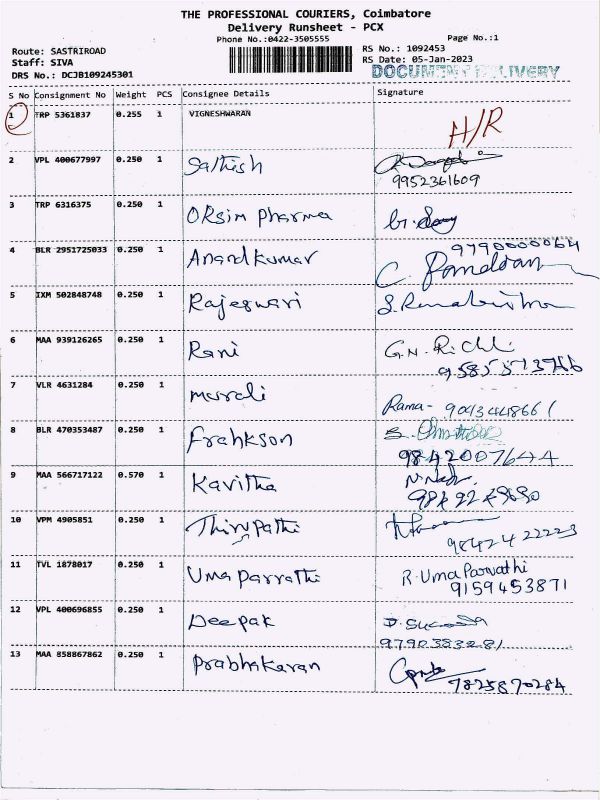 THE PROFESSIONAL COURIERS, Coimbatore
Delivery Runsheet - PCX
Phone No.:0422-3505555 Page No.:1
Route: SASTRIROAD RS No.: 1092453
Staff: SIVA RS Date: 05-Jan-2023
DRS No.: DCJB109245301 DOCUMENT DELIVERY
S No Consignment No Weight PCS Consignee Details Signature
1 TRP 5361837 0.255 1 VIGNESHWARAN H/R
2 VPL 400677997 0.250 1 Sathish
9952361609
3 TRP 6316375 0.250 1 ORsim pharma
9790000064
4 BLR 2951725033 0.250 1 Anandkumar C.
5 IXM 502848748 0.250 1 Rajeswari
6 MAA 939126265 0.250 1 Rani G.N.
7 VLR 4631284 0.250 1 murali Rama - 9043448661
8 BLR 470353487 0.250 1 Frahkson
9842007644
9 MAA 566717122 0.570 1 Kavitha
10 VPM 4905851 0.250 1 Thirupathi
9842422223
11 TVL 1878017 0.250 1 Uma parvathi R. Uma Parvathi
9159453871
12 VPL 400696855 0.250 1 Deepak
9790383281
13 MAA 858867862 0.250 1 Prabhakaran
9825870284